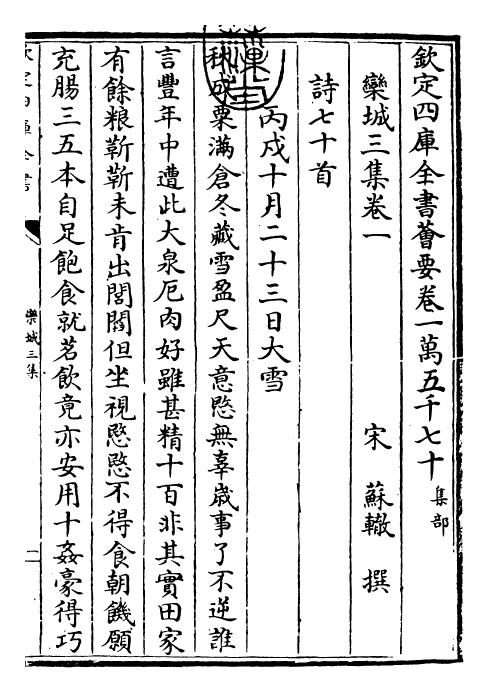 欽定四庫全書薈要卷一萬五千七十 集部
欒城三集卷一
宋 蘇轍 撰
詩七十首
丙戌十月二十三日大雪
秋成粟滿倉冬藏雪盈尺天意愍無辜歳事了不逆誰
言豐年中遭此大泉厄肉好雖甚精十百非其實田家
有餘粮靳靳未肯出閭閻但坐視愍愍不得食朝饑願
充腸三五本自足飽食就茗飲竟亦安用十姦豪得巧
欒城三集
一